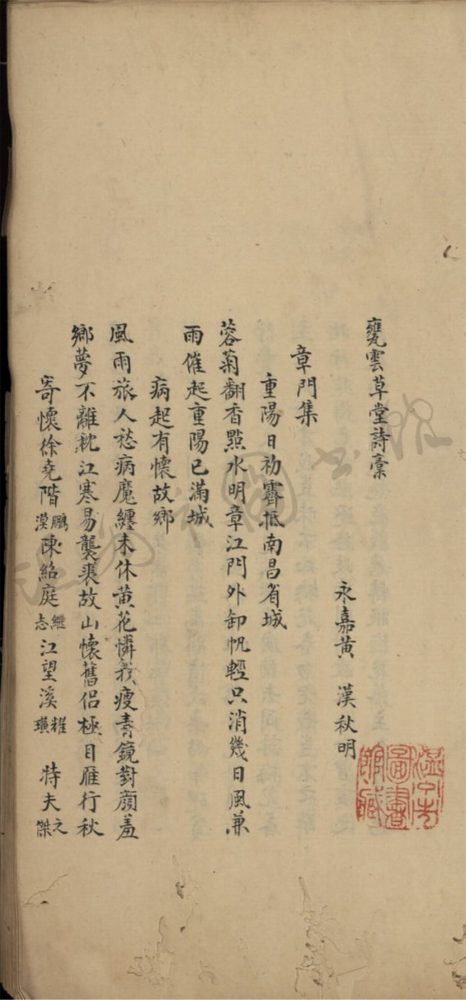 甕雲草堂詩稾
永嘉黃　漢秋明
章門集
重陽日初霽抵南昌省城
蓉菊翻香點水明章江門外卸帆輕只消幾日風兼
雨催起重陽已滿城
病起有懷故鄉
風雨旅人愁病魔纏未休黃花憐我瘦青鏡對顏羞
鄉夢不離枕江寒易襲裘故山懷舊侶極目雁行秋
寄懷徐堯階鵬漢陳紹庭繼志江望溪耀璜　特夫之傑
溫州市圖書館藏